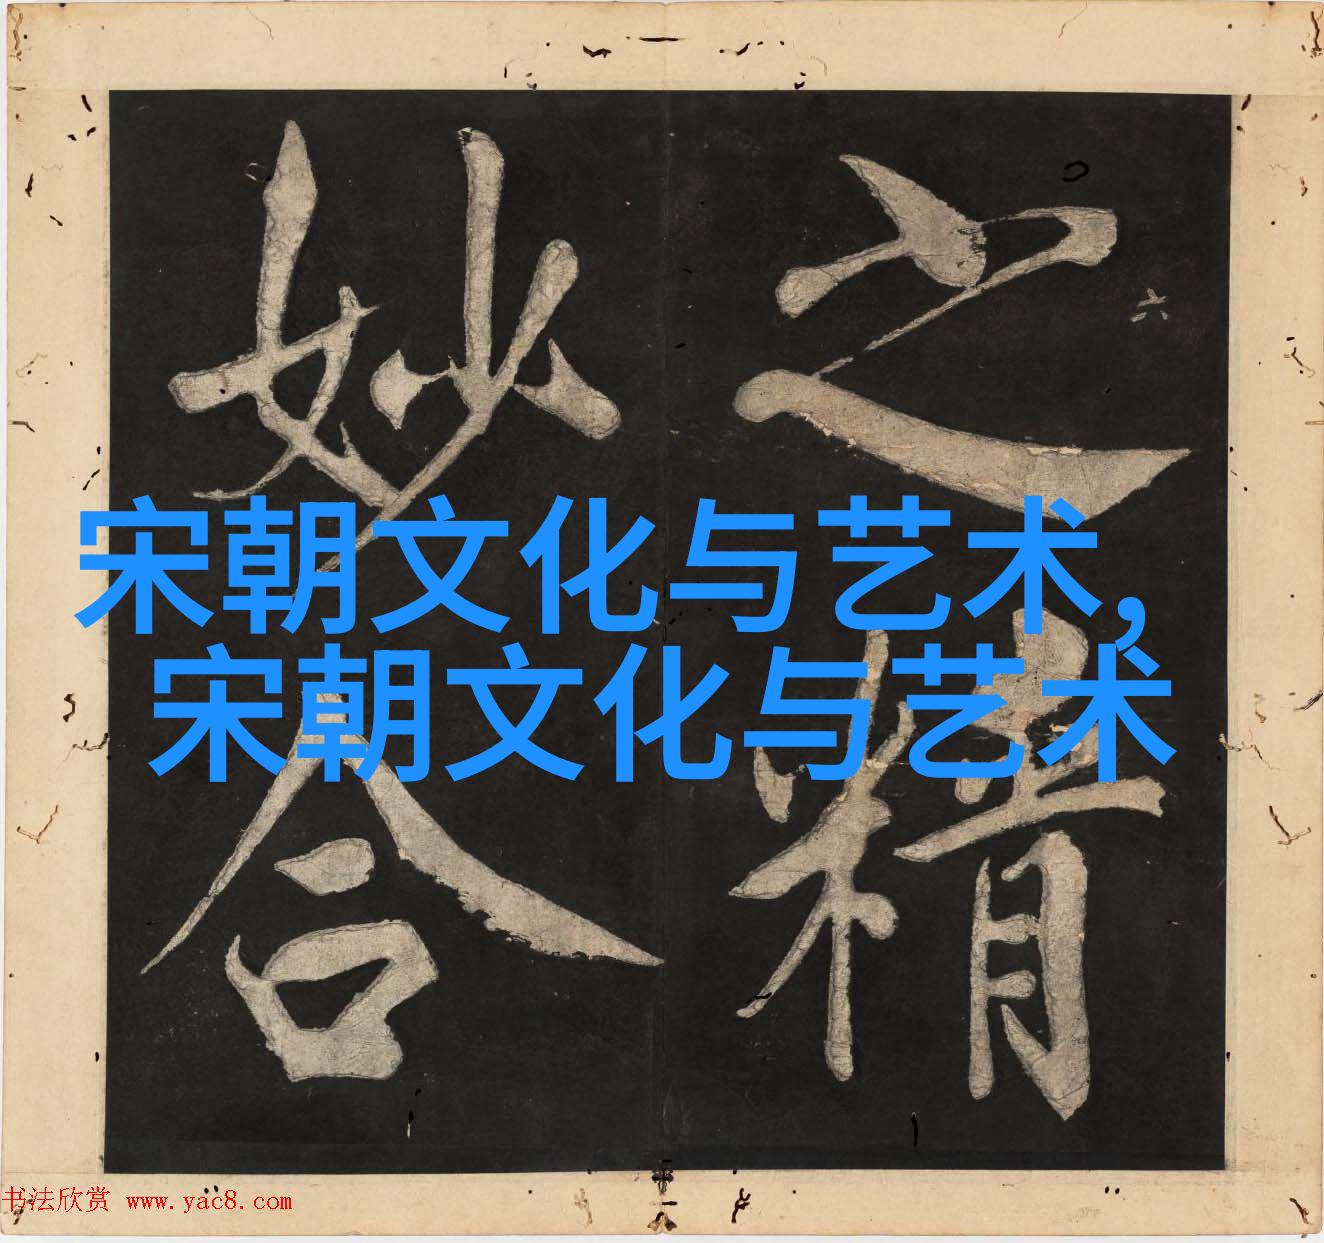 之精
妙合
六
宋朝文化与艺术,
宋朝文化与艺术
书法欣赏 www.yac8.com